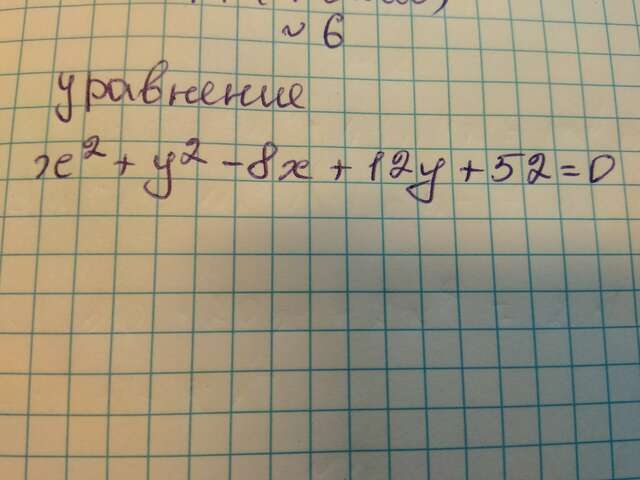 ~ 6
уравнение
x² + y² - 8x + 12y + 52 = 0